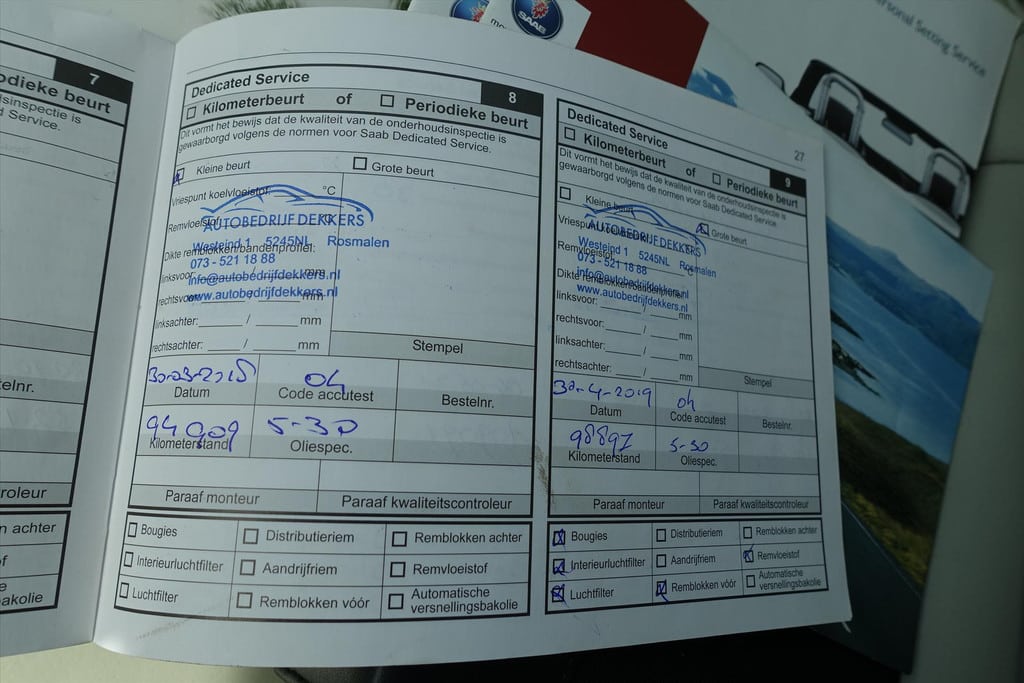 7
odieke beurt
dsinspectie is
d Service.
stelnr.
roleur
n achter
of
e
bakolie
Dedicated Service 8
Kilometerbeurt of Periodieke beurt
Dit vormt het bewijs dat de kwaliteit van de onderhoudsinspectie is
gewaarborgd volgens de normen voor Saab Dedicated Service.
Kleine beurt Grote beurt
Vriespunt koelvloeistof °C
Remvloeistof °C
AUTOBEDRIJF DEKKERS
Westeind 1 5245NL Rosmalen
Dikte remblokken/bandenprofiel:
073 - 521 18 88
linksvoor: mm
info@autobedrijfdekkers.nl
rechtsvoor: / mm
www.autobedrijfdekkers.nl
linksachter: / mm
rechtsachter: / mm
Stempel
04
Datum Code accutest Bestelnr.
94909 5-30
Kilometerstand Oliespec.
Paraaf monteur Paraaf kwaliteitscontroleur
Bougies Distributieriem Remblokken achter
Interieurluchtfilter Aandrijfriem Remvloeistof
Luchtfilter Remblokken vóór Automatische
versnellingsbakolie
27
Dedicated Service 9
Kilometerbeurt of Periodieke beurt
Dit vormt het bewijs dat de kwaliteit van de onderhoudsinspectie is
gewaarborgd volgens de normen voor Saab Dedicated Service.
Kleine beurt Grote beurt
Vriespunt koelvloeistof °C
AUTOBEDRIJF DEKKERS
Remvloeistof °C
Westeind 1 5245NL Rosmalen
073 - 521 18 88
Dikte remblokken/bandenprofiel:
info@autobedrijfdekkers.nl
www.autobedrijfdekkers.nl
linksvoor: / mm
rechtsvoor: / mm
linksachter: / mm
rechtsachter: / mm
Stempel
30-4-2019 04
Datum Code accutest Bestelnr.
98897 5-30
Kilometerstand Oliespec.
Paraaf monteur Paraaf kwaliteitscontroleur
Bougies Distributieriem Remblokken achter
Interieurluchtfilter Aandrijfriem Remvloeistof
Luchtfilter Remblokken vóór Automatische
versnellingsbakolie
SAAB
ersonal Setting Service